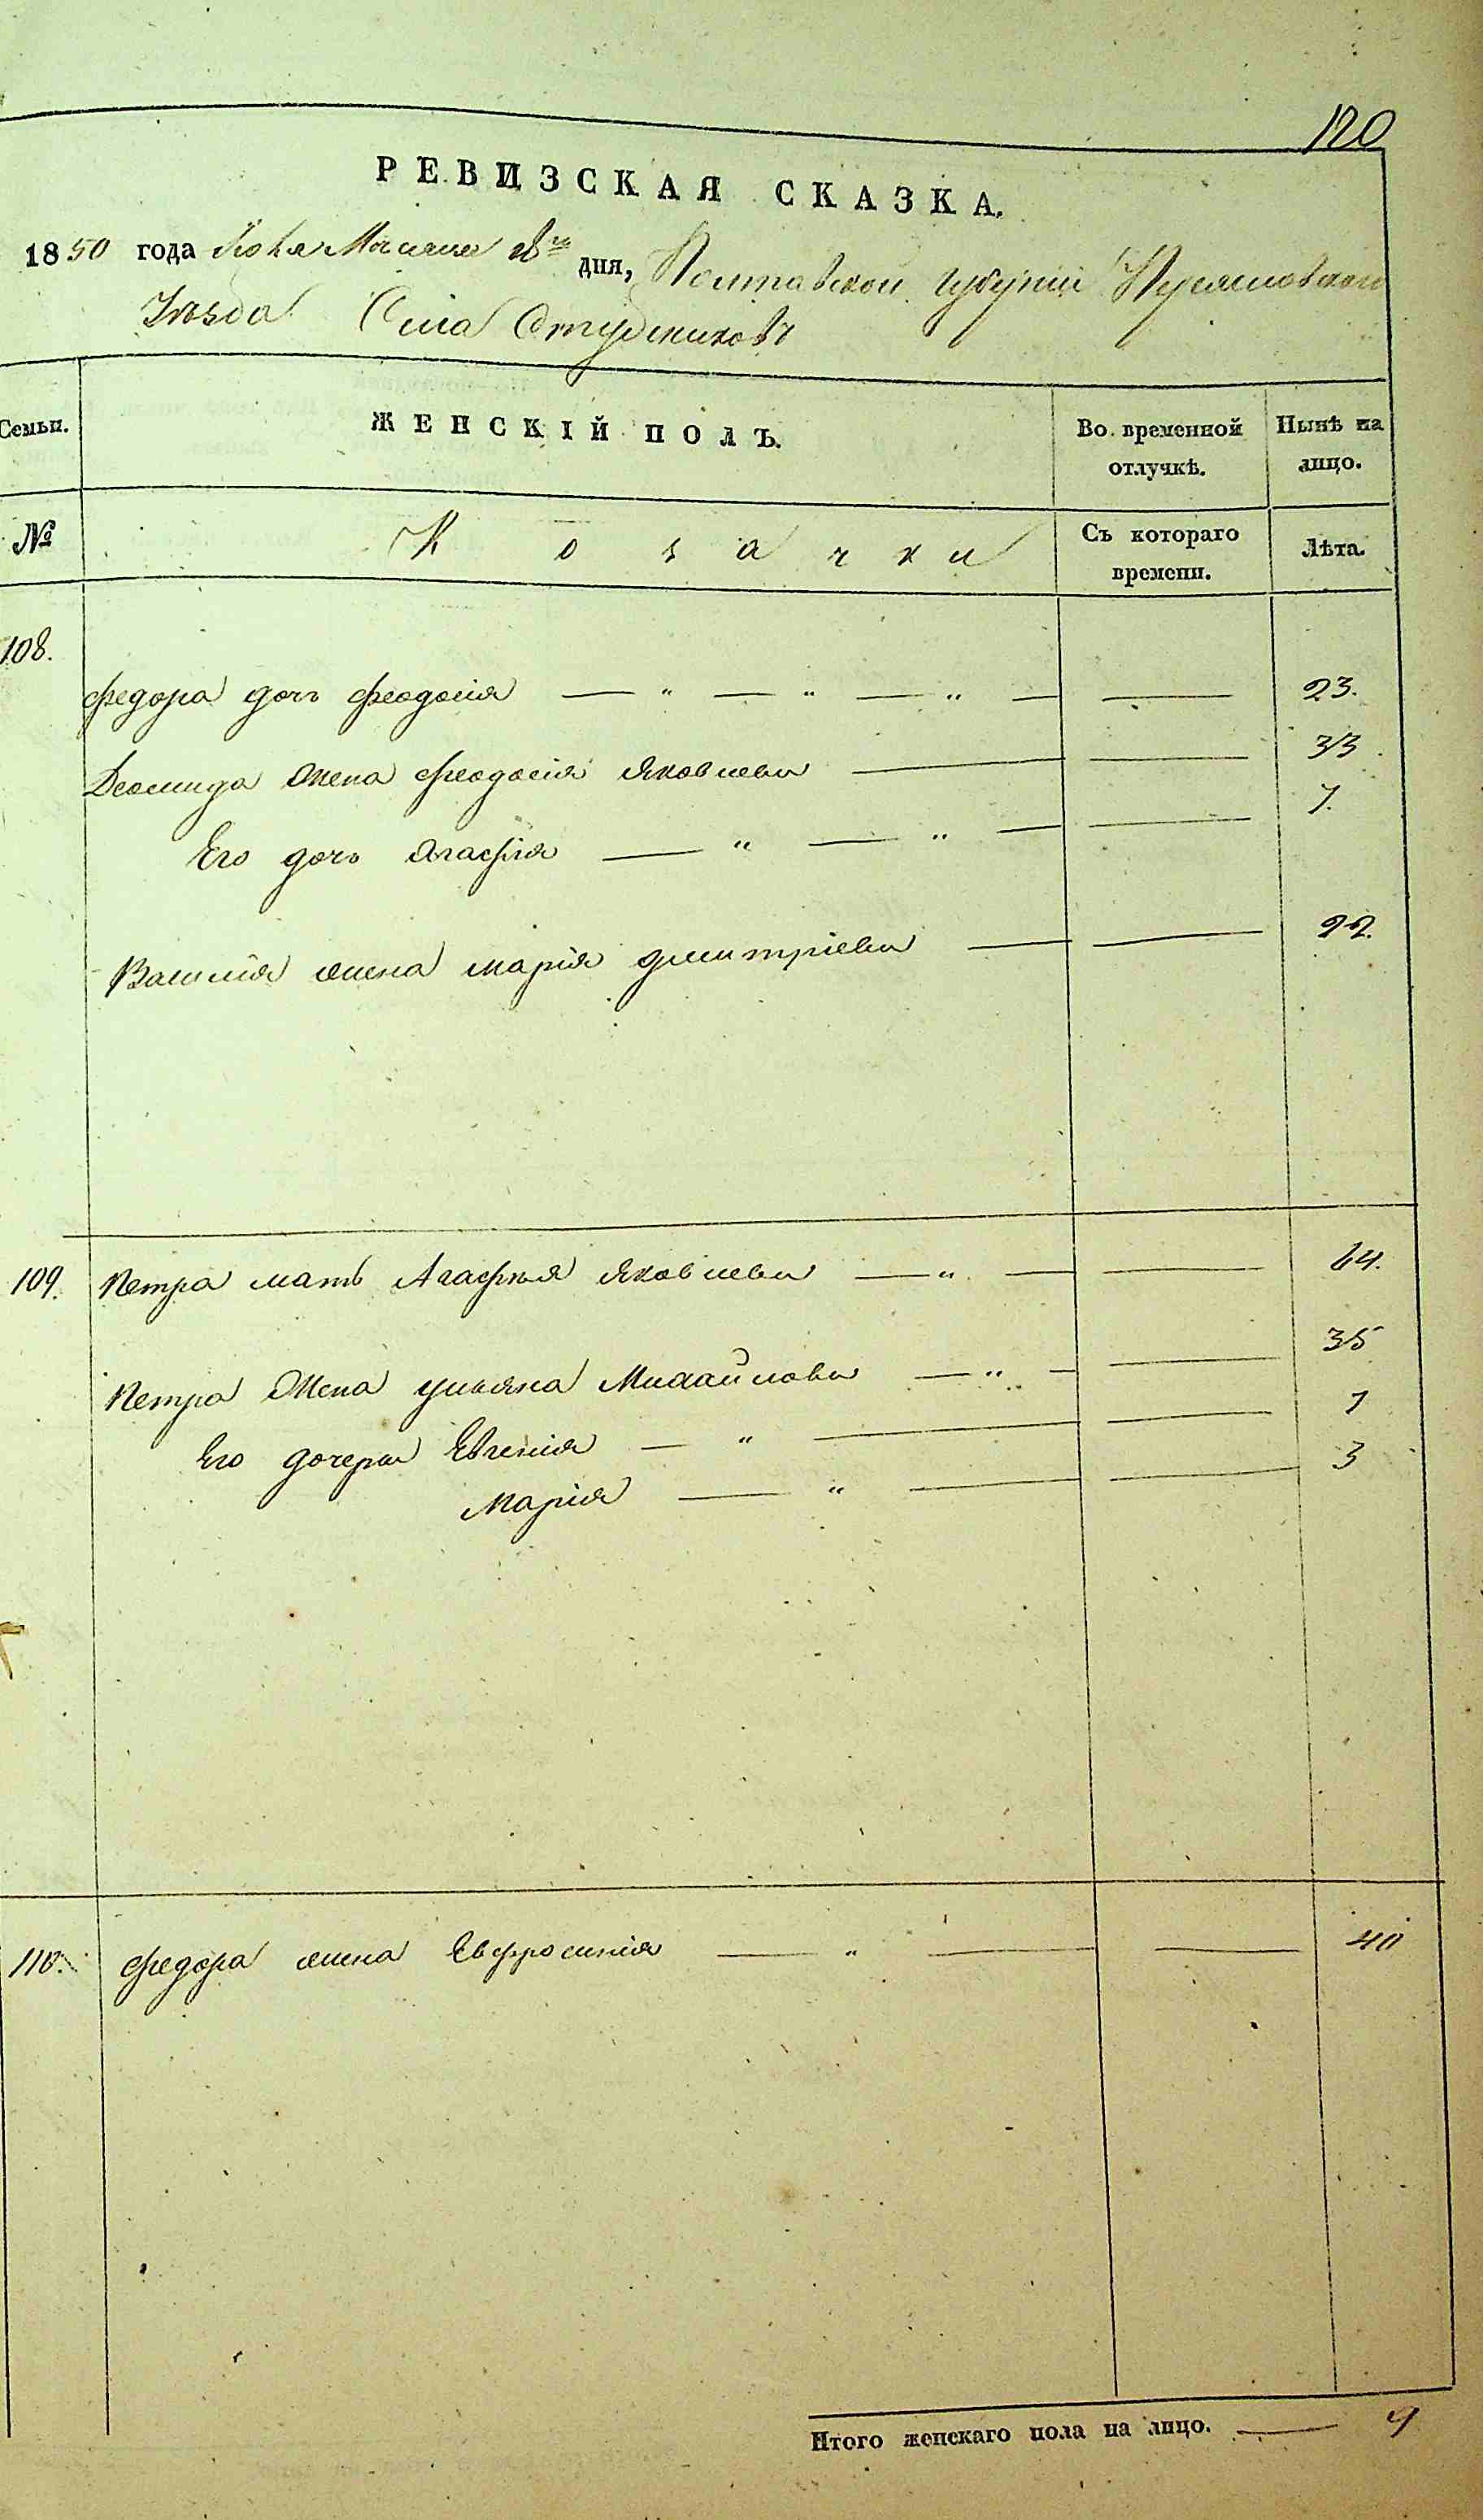 120
РЕВИЗСКАЯ СКАЗКА.
1850 года Ноября Месяца дня, Полтавской губерніи Переяславскаго
Уѣзда Села Студениковъ
Семьи. ЖЕНСКІЙ ПОЛЪ. Во временной отлучкѣ. Нынѣ на лицо.
№ Козачки Съ котораго времени. Лѣта.
108.
Федора дочь Феодосія — " — " — " — — 23.
Деомида жена Феодосія Яковлева — — 33.
Его дочь Агафія — " — " — — 7.
Василія жена Марія Дмитріева — — 22.
109. Петра мать Агафья Яковлева — " — — 64.
Петра Жена Ульяна Михайлова — " — — 35
Его дочери Евгенія — " — — 7
Марія — " — — 3
110. Федора жена Евфросинія — " — — 40
Итого женскаго пола на лицо. — 9